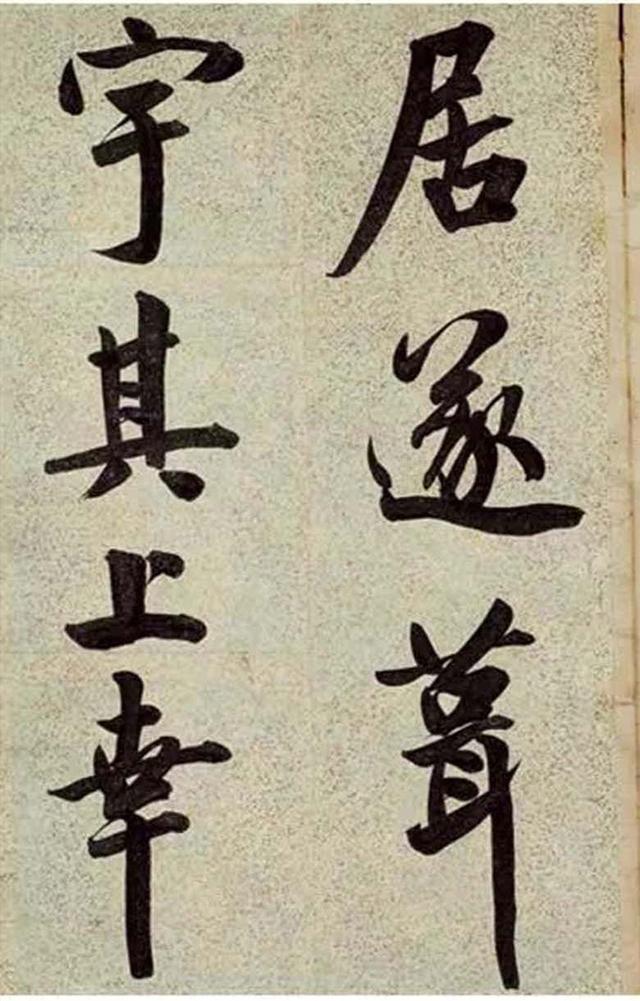 居遂葺
宇其上幸